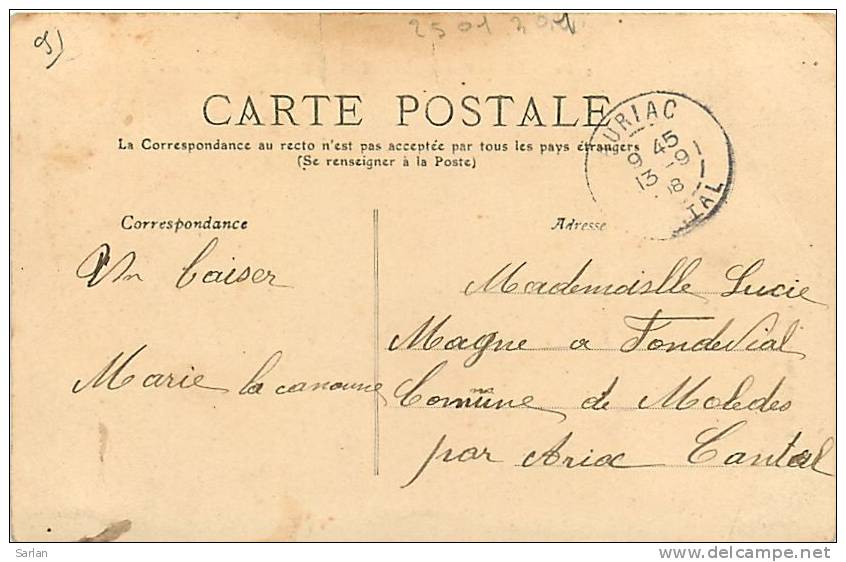 CARTE POSTALE
La Correspondance au recto n'est pas acceptée par tous les pays étrangers
(Se renseigner à la Poste)
AURIAC
9 45
13 -9
8
IAL
Correspondance
Un baiser
Marie la canoune
Adresse
Mademoislle Lucie
Magne a Fondevial
Comune de Moledes
par Ariac Cantal
Sarlan
delcampe.net